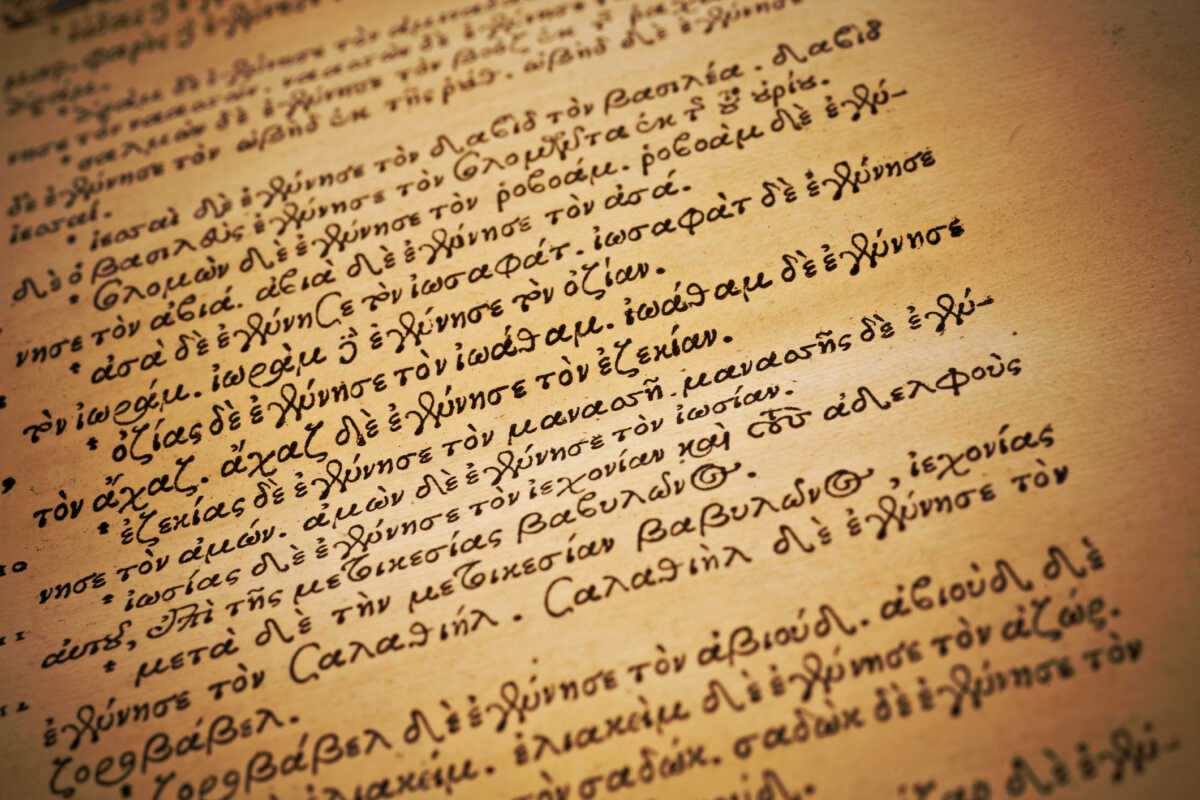 σαλμὼν δὲ ἐγέννησε τὸν βοὸζ ἐκ
δὲ ἐγέννησε τὸν ὠβὴδ ἐκ τῆς ῥούθ. ὠβὴδ δὲ ἐγέννησε
ἰεσσαί.
* ἰεσσαὶ δὲ ἐγέννησε τὸν δαβὶδ τὸν βασιλέα. δαβὶδ
δὲ ὁ βασιλεὺς ἐγέννησε τὸν σολομῶντα ἐκ τ τοῦ οὐρίου.
* σολομὼν δὲ ἐγέννησε τὸν ῥοβοάμ. ῥοβοὰμ δὲ ἐγέν-
νησε τὸν ἀβιά. ἀβιὰ δὲ ἐγέννησε τὸν ἀσά.
* ἀσὰ δὲ ἐγέννησε τὸν ἰωσαφάτ. ἰωσαφὰτ δὲ ἐγέννησε
τὸν ἰωράμ. ἰωρὰμ δὲ ἐγέννησε τὸν ὀζίαν.
* ὀζίας δὲ ἐγέννησε τὸν ἰωάθαμ. ἰωάθαμ δὲ ἐγέννησε
τὸν ἄχαζ. ἄχαζ δὲ ἐγέννησε τὸν ἐζεκίαν.
* ἐζεκίας δὲ ἐγέννησε τὸν μανασσῆ. μανασσῆς δὲ ἐγέν-
10 νησε τὸν ἀμών. ἀμὼν δὲ ἐγέννησε τὸν ἰωσίαν.
* ἰωσίας δὲ ἐγέννησε τὸν ἰεχονίαν καὶ τοὺς ἀδελφοὺς
11 αὐτοῦ, ἐπὶ τῆς μετοικεσίας βαβυλῶνος.
* μετὰ δὲ τὴν μετοικεσίαν βαβυλῶνος, ἰεχονίας
12 ἐγέννησε τὸν σαλαθιήλ. σαλαθιὴλ δὲ ἐγέννησε τὸν
ζοροβάβελ.
* ζοροβάβελ δὲ ἐγέννησε τὸν ἀβιούδ. ἀβιοὺδ δὲ
ἐλιακείμ. ἐλιακεὶμ δὲ ἐγέννησε τὸν ἀζώρ.
τὸν σαδώκ. σαδὼκ δὲ ἐγέννησε τὸν
δὲ ἐγέν-